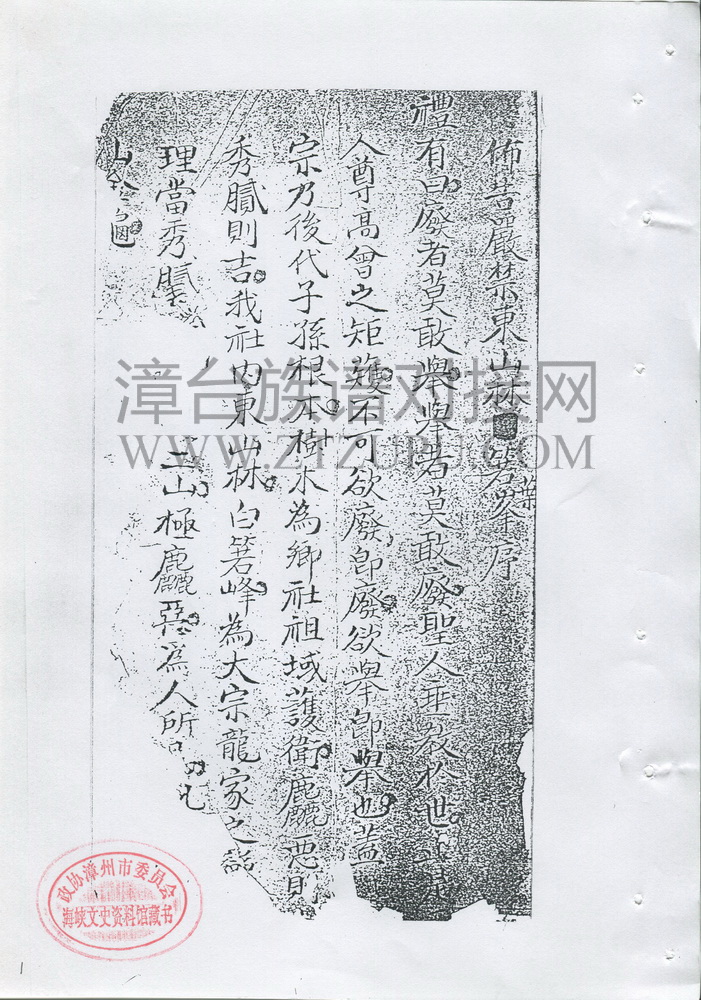 佈告嚴禁東山林箬峯序
葉
禮有曰廢者莫敢舉舉者莫敢廢聖人垂教於世
人尊高曾之矩矱不可欲廢即廢欲舉即舉也蓋
宗乃後代子孫根本樹木為鄉社祖域護衛麤惡則
秀膩則吉我社內東山林白箬峰為大宗龍家之
理當秀膩
二山極麤惡為人所
山
漳台族谱对接网
WWW.ZTZUPU.COM
政协漳州市委员会
海峡文史资料馆藏书